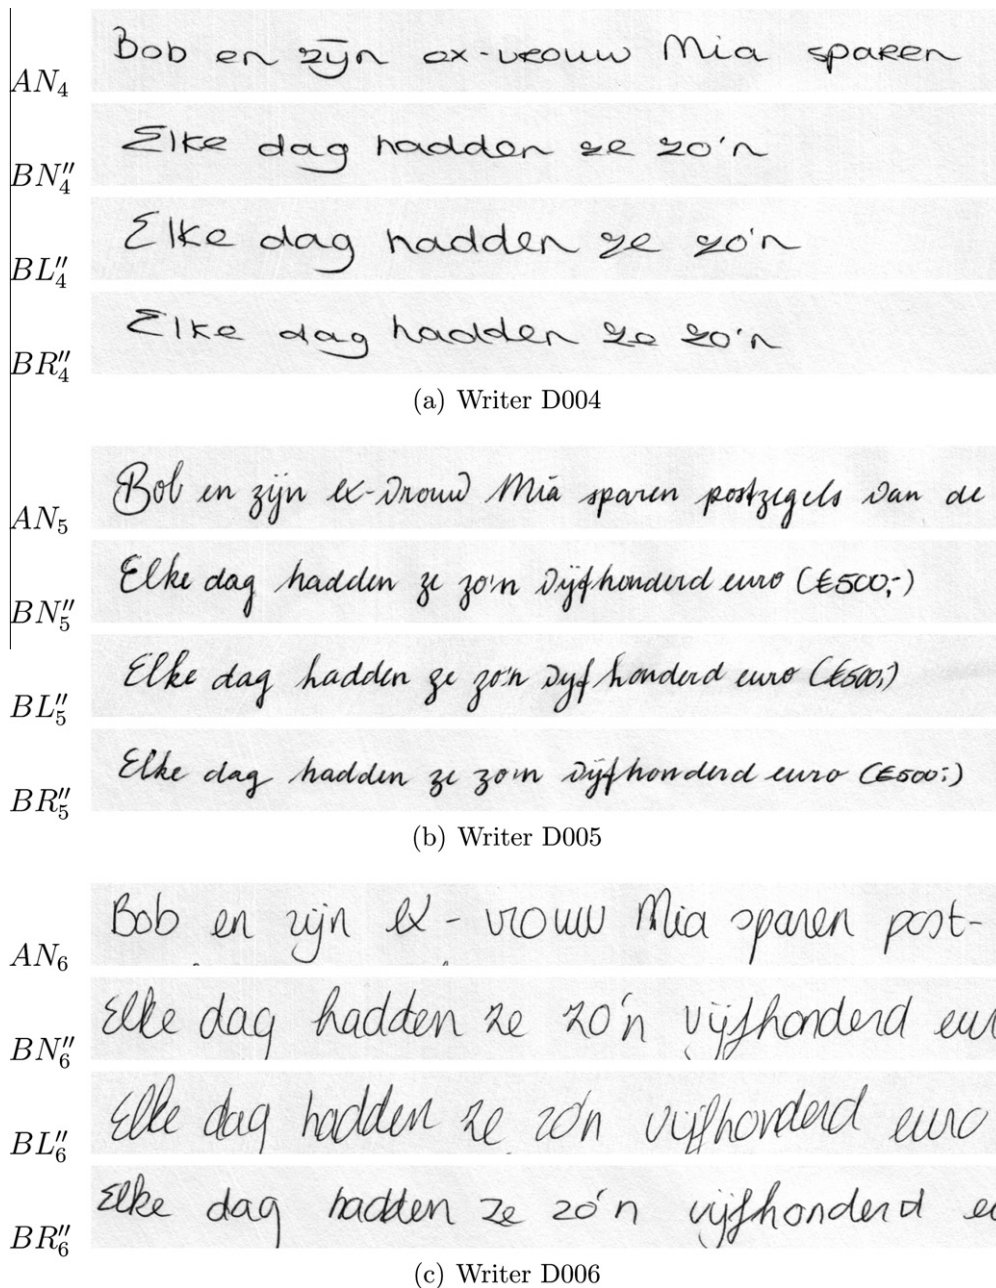 AN₄ Bob en zijn ex-vrouw Mia sparen
BN₄″ Elke dag hadden ze zo'n
BL₄″ Elke dag hadden ze zo'n
BR₄″ Elke dag hadden ze zo'n
(a) Writer D004
AN₅ Bob en zijn ex-vrouw Mia sparen postzegels van de
BN₅″ Elke dag hadden ze zo'n vijfhonderd euro (€500,-)
BL₅″ Elke dag hadden ze zo'n vijfhonderd euro (€500,-)
BR₅″ Elke dag hadden ze zo'n vijfhonderd euro (€500,-)
(b) Writer D005
AN₆ Bob en zijn ex-vrouw Mia sparen post-
BN₆″ Elke dag hadden ze zo'n vijfhonderd eur
BL₆″ Elke dag hadden ze zo'n vijfhonderd euro
BR₆″ Elke dag hadden ze zo'n vijfhonderd eu
(c) Writer D006